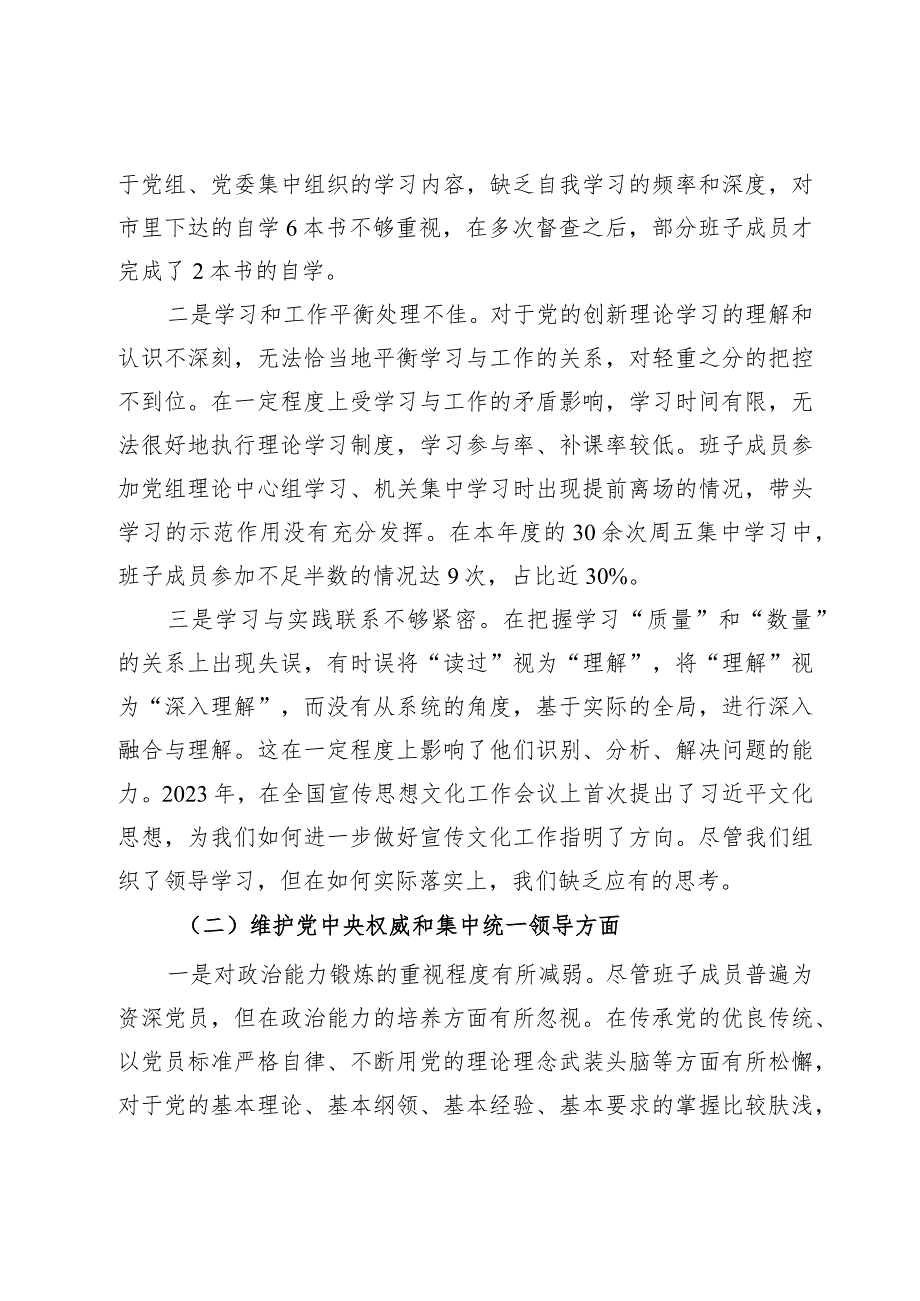 于党组、党委集中组织的学习内容，缺乏自我学习的频率和深度，对
市里下达的自学 6 本书不够重视，在多次督查之后，部分班子成员才
完成了 2 本书的自学。
二是学习和工作平衡处理不佳。对于党的创新理论学习的理解和
认识不深刻，无法恰当地平衡学习与工作的关系，对轻重之分的把控
不到位。在一定程度上受学习与工作的矛盾影响，学习时间有限，无
法很好地执行理论学习制度，学习参与率、补课率较低。班子成员参
加党组理论中心组学习、机关集中学习时出现提前离场的情况，带头
学习的示范作用没有充分发挥。在本年度的 30 余次周五集中学习中，
班子成员参加不足半数的情况达 9 次，占比近 30%。
三是学习与实践联系不够紧密。在把握学习“质量”和“数量”
的关系上出现失误，有时误将“读过”视为“理解”，将“理解”视
为“深入理解”，而没有从系统的角度，基于实际的全局，进行深入
融合与理解。这在一定程度上影响了他们识别、分析、解决问题的能
力。2023 年，在全国宣传思想文化工作会议上首次提出了习近平文化
思想，为我们如何进一步做好宣传文化工作指明了方向。尽管我们组
织了领导学习，但在如何实际落实上，我们缺乏应有的思考。
（二）维护党中央权威和集中统一领导方面
一是对政治能力锻炼的重视程度有所减弱。尽管班子成员普遍为
资深党员，但在政治能力的培养方面有所忽视。在传承党的优良传统、
以党员标准严格自律、不断用党的理论理念武装头脑等方面有所松懈，
对于党的基本理论、基本纲领、基本经验、基本要求的掌握比较肤浅，